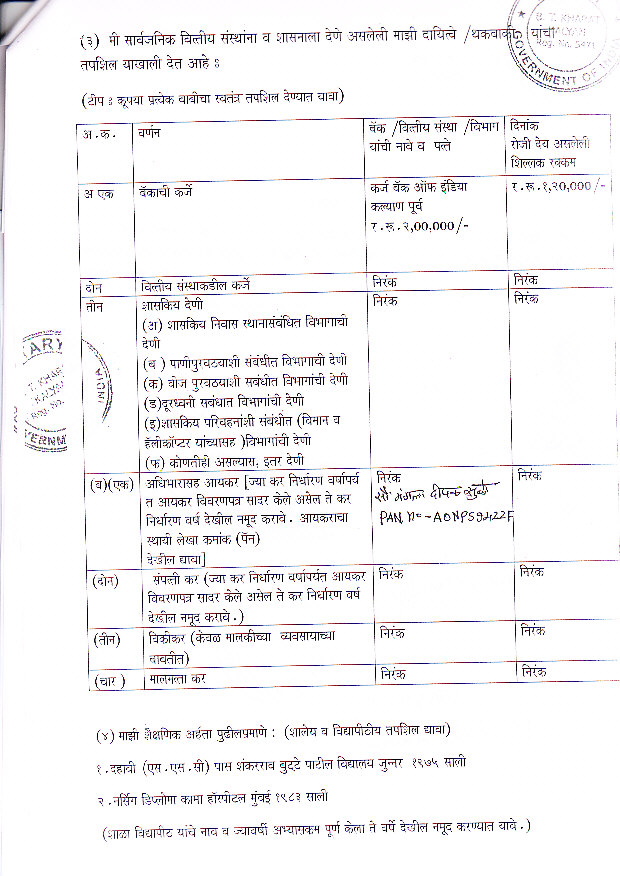 (३) मी सार्वजनिक वित्तीय संस्थांना व शासनाला देणे असलेली माझी दायित्वे /थकवाकी यांची
तपशिल याखाली देत आहे :
(टीप : कृपया प्रत्येक बाबीचा स्वतंत्र तपशिल देण्यात यावा)
अ.क. वर्णन बॅक /वित्तीय संस्था /विभाग यांची नावे व पत्ते दिनांक रोजी देय असलेली शिल्लक रक्कम
अ एक बॅकाची कर्जे कर्ज बॅक ऑफ इंडिया र.रू.१,२०,०००/-
कल्याण पूर्व
र.रू.२,००,०००/-
दोन वित्तीय संस्थाकडील कर्जे निरंक निरंक
तीन शासकिय देणी निरंक निरंक
(अ) शासकिय निवास स्थानासंबंधित विभागाची
देणी
(ब ) पाणीपुरवठयाशी संबंधीत विभागाची देणी
(क) वीज पुरवठयाशी सबंधीत विभागांची देणी
(ड)दूरध्वनी सबंधात विभागांची देणी
(इ)शासकिय परिवहनांशी संबंधीत (विमान व
हॅलीकॉप्टर यांच्यासह )विभागांची देणी
(फ) कोणतीही असल्यास, इतर देणी
(ब)(एक) अधिभारासह आयकर [ज्या कर निर्धारण वर्षापर्य निरंक निरंक
त आयकर विवरणपत्र सादर केले असेल ते कर
निर्धारण वर्ष देखील नमूद करावे. आयकराचा PAN no -
स्थायी लेखा क्रमांक (पॅन)
देखील द्यावा]
(दोन) संपत्ती कर (ज्या कर निर्धारण वर्षापर्यत आयकर निरंक निरंक
विवरणपत्र सादर केले असेल ते कर निर्धारण वर्ष
देखील नमूद करावे.)
(तीन) विकीकर (केवळ मालकीच्या व्यवसायाच्या निरंक निरंक
बाबतीत)
(चार ) मालमत्ता कर निरंक निरंक
(४) माझी शैक्षणिक अर्हता पुढीलप्रमाणे : (शालेय व विद्यापीठीय तपशिल द्यावा)
१.दहावी (एस.एस.सी) पास शंकरराव बुट्टे पाटील विद्यालय जुन्नर १९७५ साली
२.नर्सिग डिप्लोमा कामा हॉस्पीटल मुंबई १९८३ साली
(शाळा विद्यापीठ यांचे नाव व ज्यावर्षी अभ्यासकम पूर्ण केला ते वर्षे देखील नमूद करण्यात यावे.)